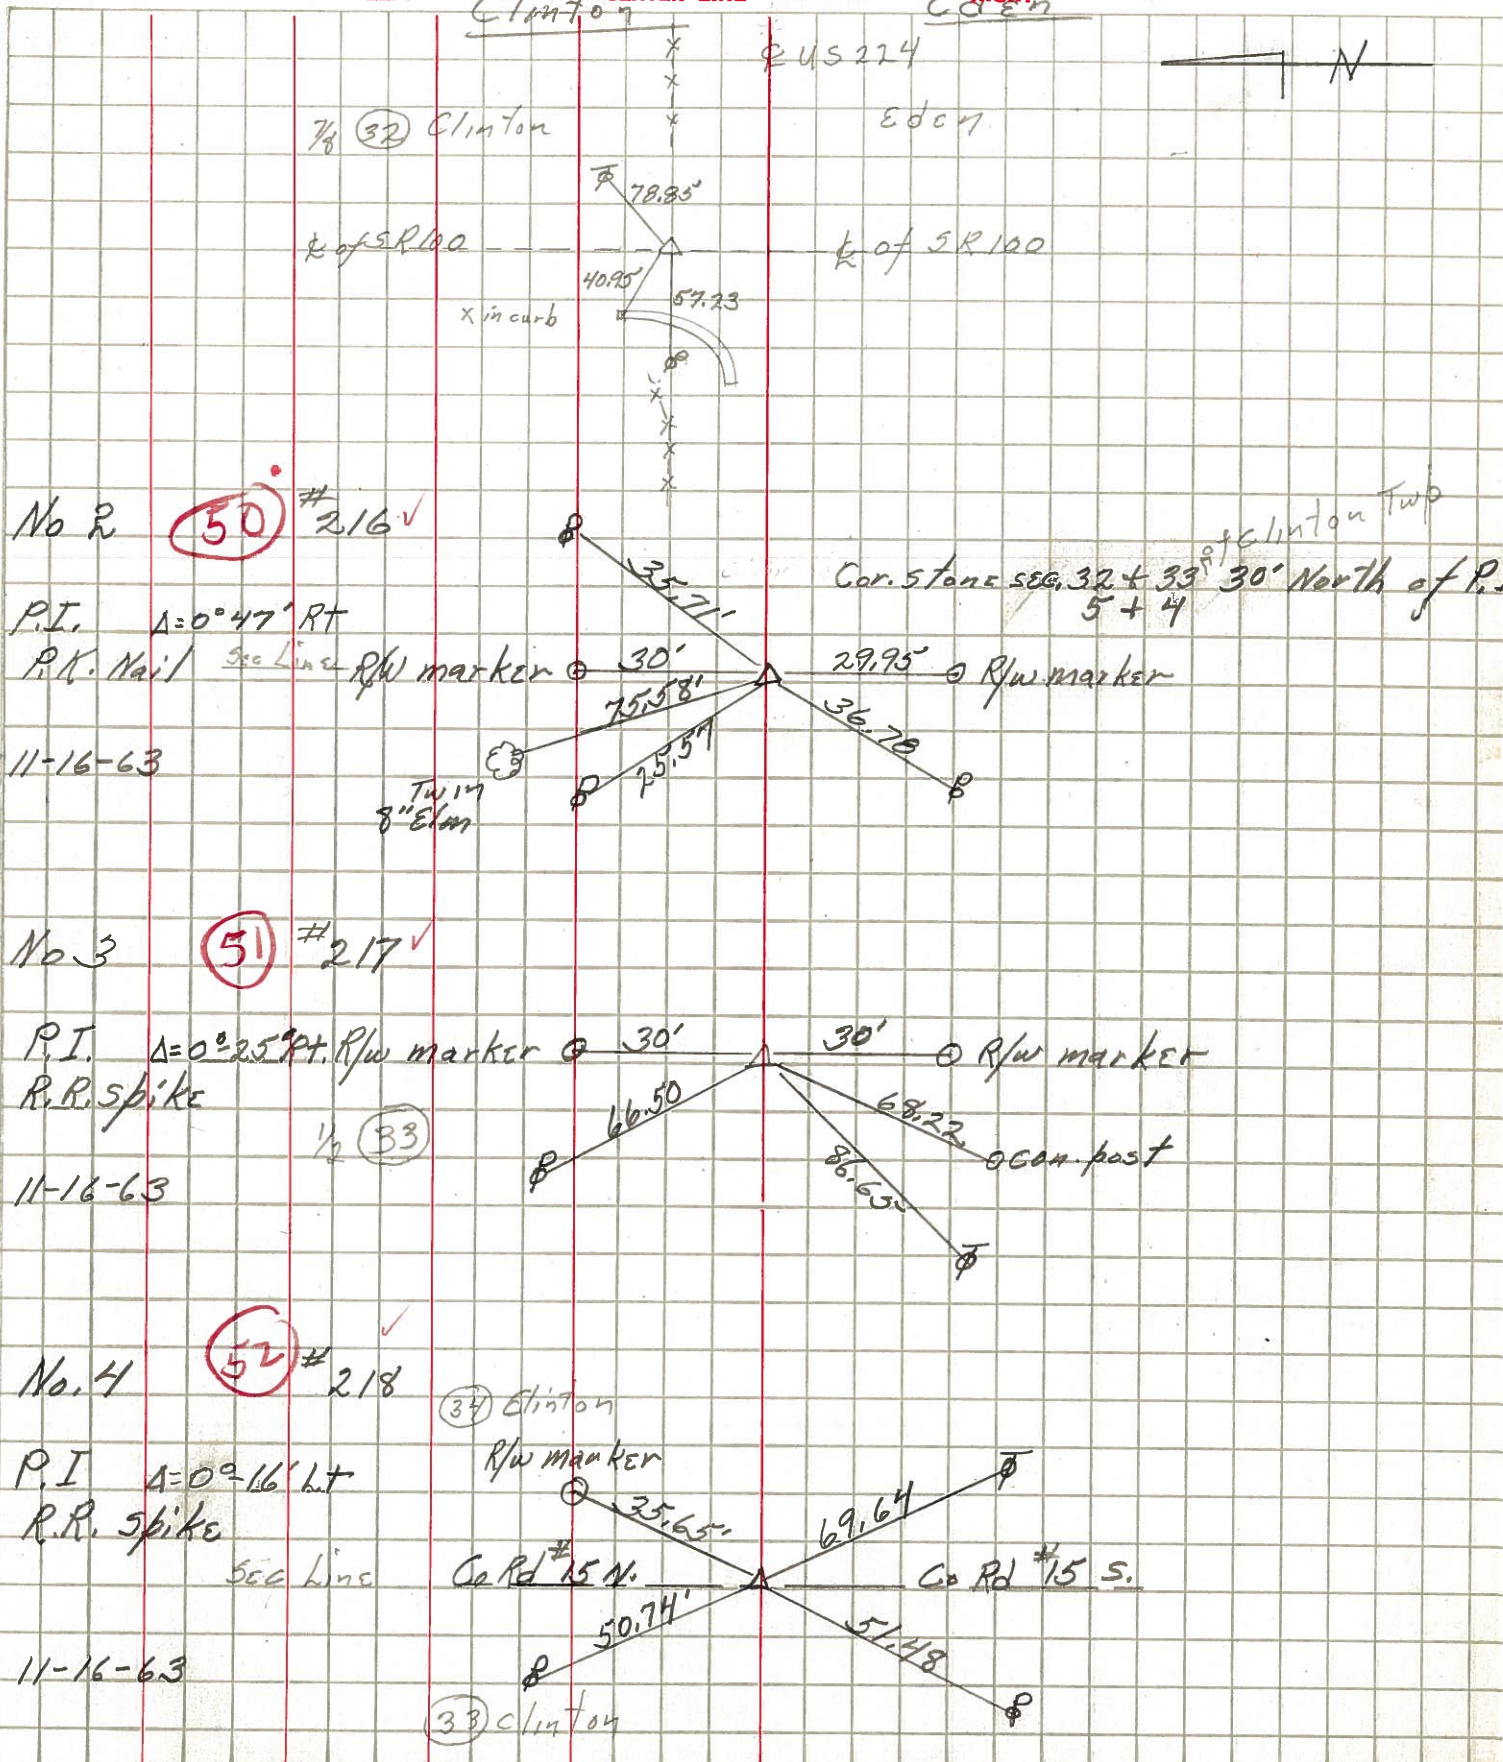 Clinton
℄ US 224
N
7/8 (32) Clinton
Eden
78.85'
℄ of SR 100
℄ of SR 100
40.95'
57.23
x in curb
No 2 (50) #216 ✓
of Clinton Twp
35.71'
Cor. stone sec. 32 + 33 30' North of P.
5 + 4
P.I. Δ=0°47' Rt
P.K. Nail Sec Line R/W marker 30' 29.95 R/W marker
75.58'
36.78
25.57
11-16-63
Twin
8" Elm
No 3 (51) #217 ✓
P.I. Δ=0°-25' Rt. R/W marker 30' 30' R/W marker
R.R. spike
66.50
68.22
1/2 (33)
86.65
con. post
11-16-63
No. 4 (52) #218 ✓
(34) Clinton
R/W marker
P.I Δ=0°-16' Lt
R.R. spike
35.65'
69.64
Sec Line Co Rd #15 N. Co Rd #15 S.
50.74'
51.48
11-16-63
(33) Clinton